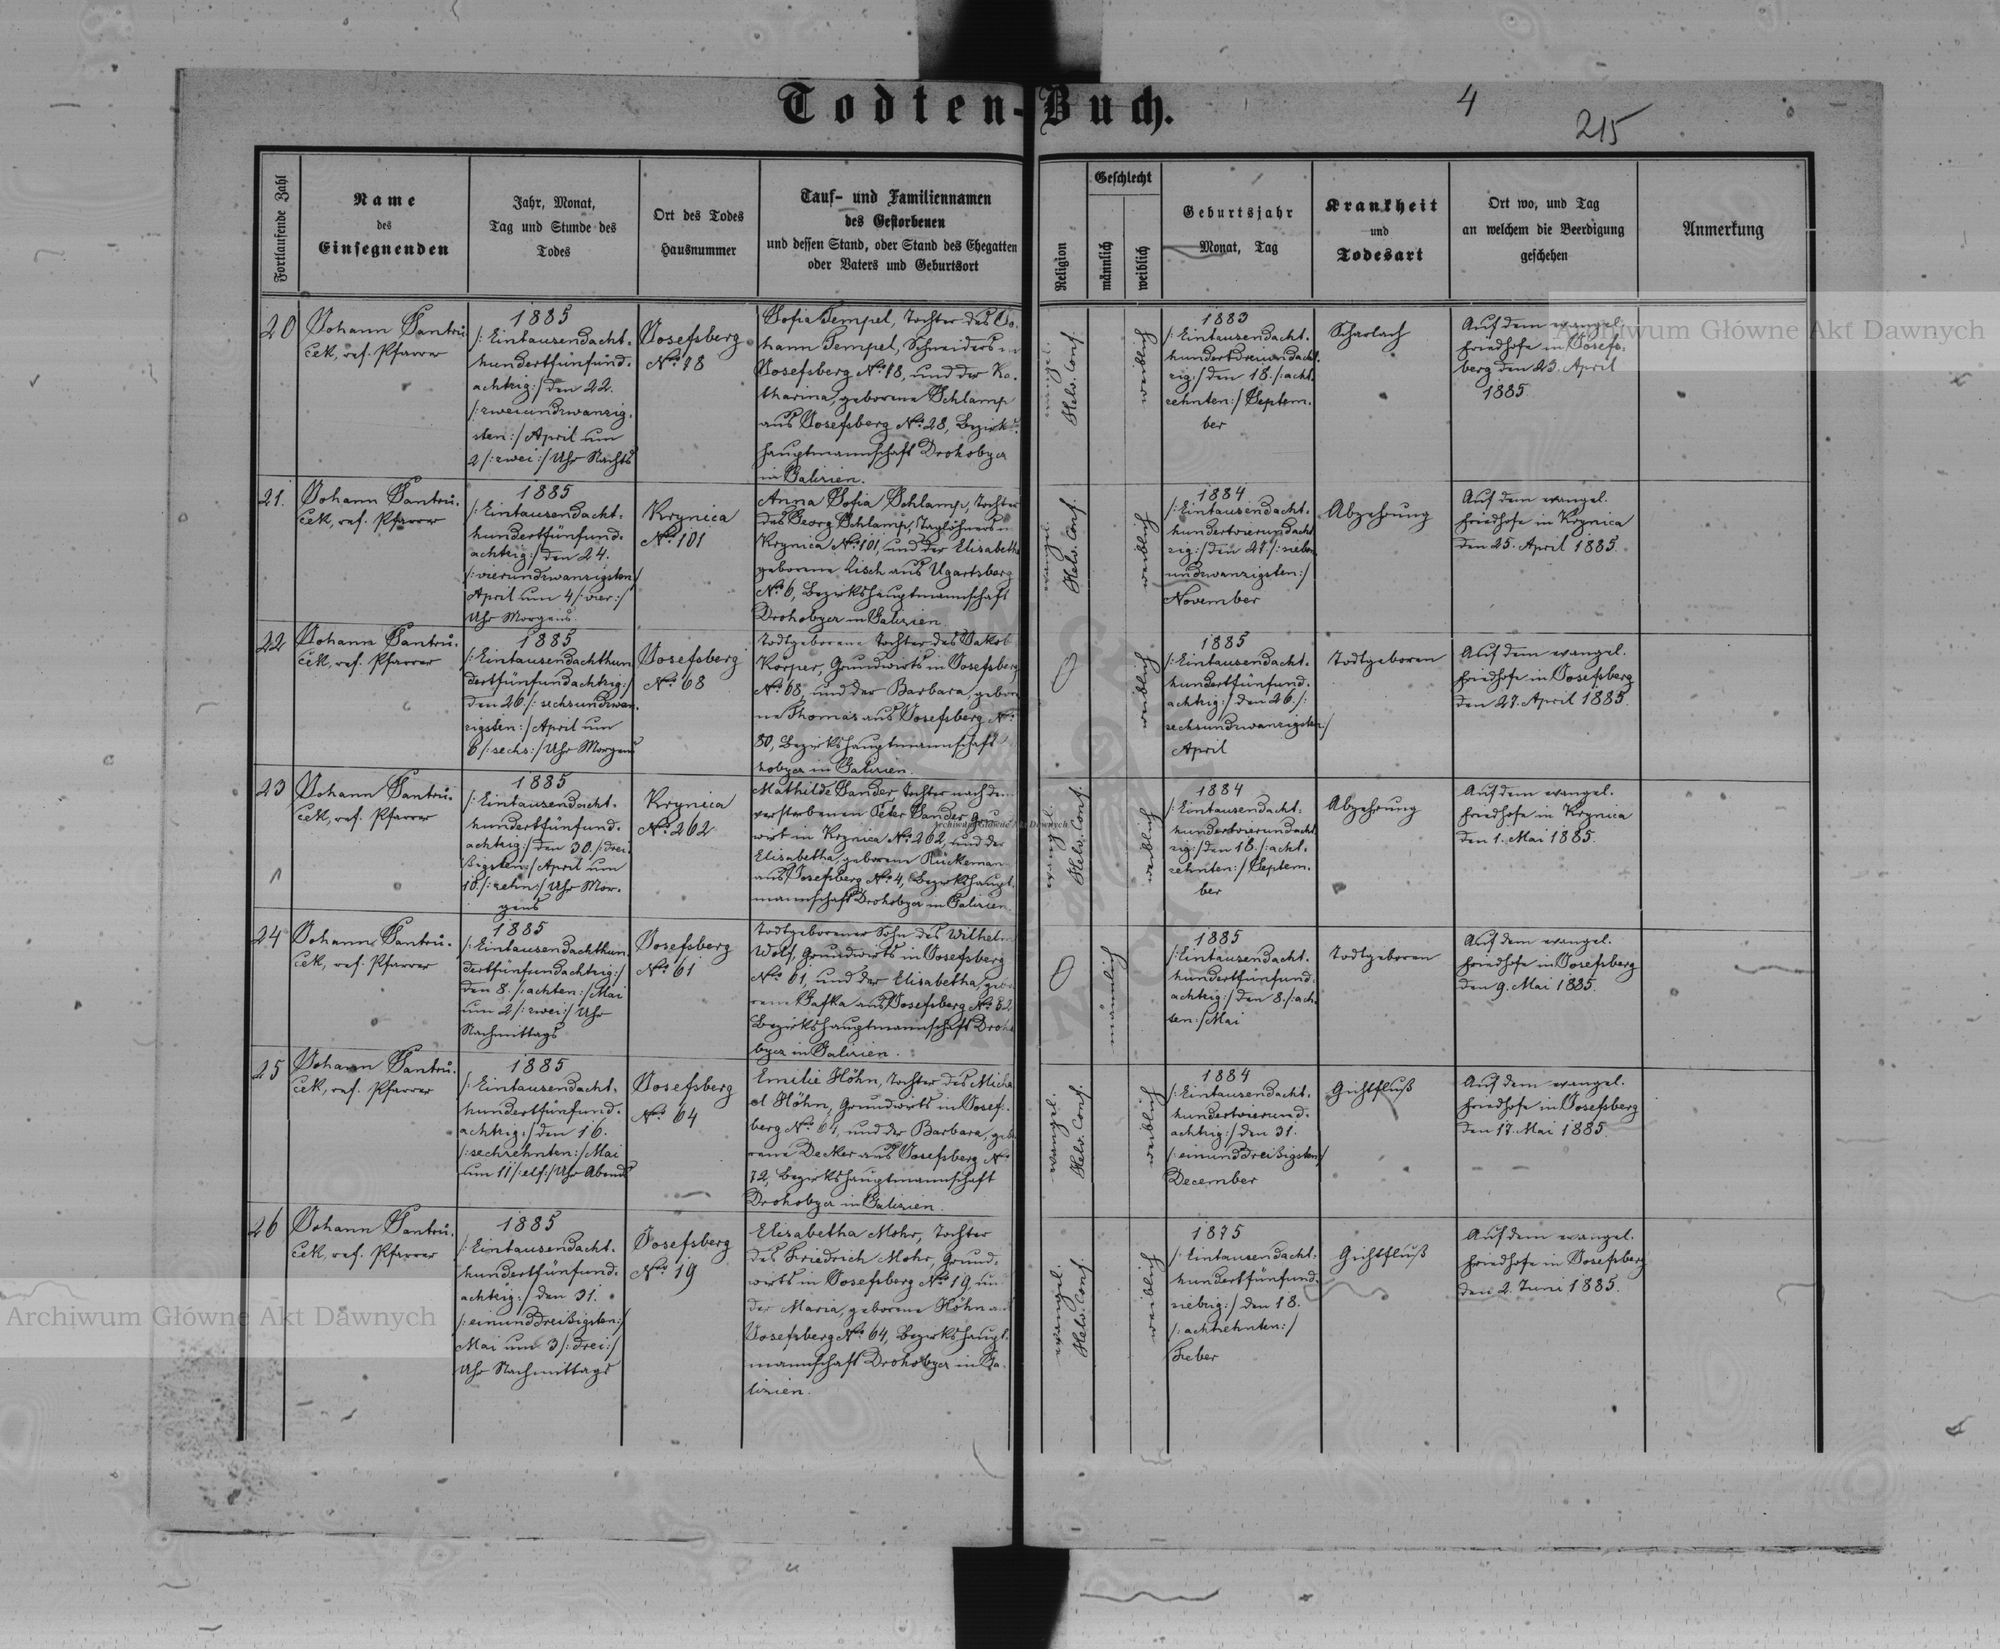 Todten-Buch.
4
215
Fortlaufende Zahl
Name
des
Einsegnenden
Jahr, Monat,
Tag und Stunde des
Todes
Ort des Todes
Hausnummer
Tauf- und Familiennamen
des Gestorbenen
und dessen Stand, oder Stand des Ehegatten
oder Vaters und Geburtsort
Religion
Geschlecht
männlich
weiblich
Geburtsjahr
Monat, Tag
Krankheit
und
Todesart
Ort wo, und Tag
an welchem die Beerdigung
geschehen
Anmerkung
20
Johann Jantrů
ček, ref. Pfarrer
1885
/: Eintausendacht-
hundertfünfund-
achtzig :/ den 22.
/: zweiundzwanzig-
sten :/ April um
2 /: zwei :/ Uhr Nachts
Josefsberg
No. 18
Sofia Tempel, Tochter des Jo-
hann Tempel, Schneiders in
Josefsberg No. 18, und der Ka-
tharina, geborene Schlamp
aus Josefsberg No. 28, Bezirks-
hauptmannschaft Drohobycz
in Galizien.
evangel.
Helv. Conf.
weiblich
1883
/: Eintausendacht-
hundertdreiundacht-
zig :/ den 18. /: acht-
zehnten :/ Septem-
ber
Scharlach
Auf dem evangel.
Friedhofe in Josefs-
berg den 23. April
1885.
21.
Johann Jantrů-
ček, ref. Pfarrer
1885
/: Eintausendacht-
hundertfünfund-
achtzig :/ den 24.
/: vierundzwanzigsten :/
April um 4 /: vier :/
Uhr Morgens.
Krynica
No. 101
Anna Sofia Schlamp, Tochter
des Georg Schlamp, Taglöhners in
Krynica No. 101, und der Elisabeth
geborene Lisch aus Ugartsberg
No. 6, Bezirkshauptmannschaft
Drohobycz in Galizien.
evangel.
Helv. Conf.
weiblich
1884
/: Eintausendacht-
hundertvierundacht
zig :/ den 27. /: sieben
undzwanzigsten :/
November
Abzehrung
Auf dem evangel.
Friedhofe in Krynica
den 25. April 1885.
22
Johann Jantrů-
ček, ref. Pfarrer
1885
/: Eintausendachthun
dertfünfundachtzig :/
den 26. /: sechsundzwan-
zigsten :/ April um
6 /: sechs :/ Uhr Morgens
Josefsberg
No. 68
Todtgeborene Tochter des Jakob
Körper, Grundwirts in Josefsberg
No. 68, und der Barbara, gebore
ne Thomas aus Josefsberg No.
80, Bezirkshauptmannschaft
hobycz in Galizien.
weiblich
1885
/: Eintausendacht-
hundertfünfund-
achtzig :/ den 26. /:
sechsundzwanzigsten :/
April
Todtgeboren
Auf dem evangel.
Friedhofe in Josefsberg
den 27. April 1885.
23
Johann Jantrů-
ček, ref. Pfarrer
1885
/: Eintausendacht-
hundertfünfund-
achtzig :/ den 30. /: drei-
ßigsten :/ April um
10. /: zehn :/ Uhr Mor-
gens
Krynica
No. 262
Mathilde Sander, Tochter nach dem
verstorbenen Peter Sander Grund
wirt in Krynica No. 262, und der
Elisabetha, geborene Rückeman
aus Josefsberg No. 4, Bezirkshaupt-
mannschaft Drohobycz in Galizien.
evangel.
Helv. Conf.
weiblich
1884
/: Eintausendacht-
hundertvierundacht
zig :/ den 18. /: acht-
zehnten :/ Septem-
ber
Abzehrung
Auf dem evangel.
Friedhofe in Krynica
den 1. Mai 1885.
24
Johann Jantrů-
ček, ref. Pfarrer
1885
/: Eintausendachthun
dertfünfundachtzig :/
den 8. /: achten :/ Mai
um 2 /: zwei :/ Uhr
Nachmittags
Josefsberg
No. 61
Todtgeborener Sohn des Wilhelm
Wolf, Grundwirts in Josefsberg
No. 61, und der Elisabetha, gebo-
rene Gafka aus Josefsberg No. 82
Bezirkshauptmannschaft Droho
bycz in Galizien.
männlich
1885
/: Eintausendacht-
hundertfünfund
achtzig :/ den 8. /: ach-
ten :/ Mai
Todtgeboren
Auf dem evangel.
Friedhofe in Josefsberg
den 9. Mai 1885.
25
Johann Jantrů-
ček, ref. Pfarrer
1885
/: Eintausendacht-
hundertfünfund-
achtzig :/ den 16.
/: sechzehnten :/ Mai
um 11 /: elf :/ Uhr Abends
Josefsberg
No. 64
Emilie Höhn, Tochter des Micha
el Höhn, Grundwirts in Josefs-
berg No. 64, und der Barbara, gebo
rene Decker aus Josefsberg No.
72, Bezirkshauptmannschaft
Drohobycz in Galizien.
evangel.
Helv. Conf.
weiblich
1884
/: Eintausendacht-
hundertvierund-
achtzig :/ den 31.
/: einunddreißigsten :/
December
Gichtfluß
Auf dem evangel.
Friedhofe in Josefsberg
den 17. Mai 1885.
26
Johann Jantrů-
ček, ref. Pfarrer
1885
/: Eintausendacht-
hundertfünfund-
achtzig :/ den 31.
/: einunddreißigsten :/
Mai um 3 /: drei :/
Uhr Nachmittags
Josefsberg
No. 19
Elisabetha Mohr, Tochter
des Friedrich Mohr, Grund-
wirts in Josefsberg No. 19, und
der Maria, geborene Höhn aus
Josefsberg No. 64, Bezirkshaupt-
mannschaft Drohobycz in Ga-
lizien.
evangel.
Helv. Conf.
weiblich
1875
/: Eintausendacht-
hundertfünfund-
siebzig :/ den 18.
/: achtzehnten :/
Feber
Gichtfluß
Auf dem evangel.
Friedhofe in Josefsberg
den 2. Juni 1885.
Archiwum Główne Akt Dawnych
Archiwum Główne Akt Dawnych
Archiwum Główne Akt Dawnych